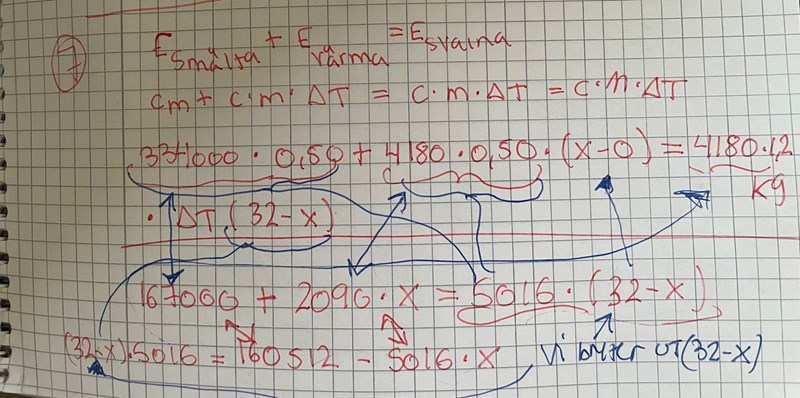 7
E smälta + E värma = E svalna
cm + c·m·ΔT = c·m·ΔT = c·m·ΔT
334000 · 0,50 + 4180 · 0,50 · (x-0) = 4180·1,2
kg
· ΔT (32-x)
167000 + 2090·x = 5016·(32-x)
(32-x)·5016 = 160512 - 5016·x Vi bryter ut (32-x)